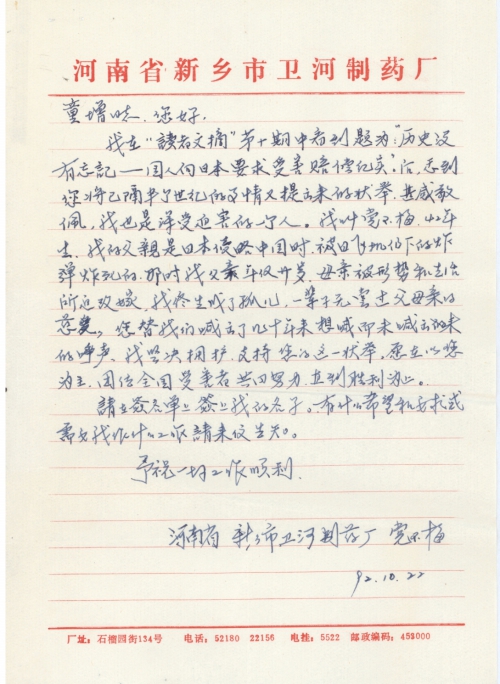 河南省新乡市卫河制药厂
童增 您好.
我在“讀者文摘”第十期中看到题为“历史没
有忘記——国人向日本要求受害赔偿纪实”后,感到
您将已隔半个世纪的事情又提出来的壮举,甚感敬
佩,我也是深受迫害的一个人。我叫党 梅,42年
生,我的父親是日本侵略中国时,被日飞机仍下的炸
弹炸死的,那时我父亲年仅廿岁,母亲被形势和生活
所迫改嫁,我终生成了孤儿,一辈子无尝过父母亲的
慈爱。您替我们喊出了几十年来想喊而未喊出的来
的呼声,我坚决拥护、支持您的这一状举,愿在以您
为主,团结全国受害者共同努力,直到胜利为止。
請在签名单上签上我的名子。有什么希望和要求或
需要我作什么工作請来信告知。
予祝一切工作顺利.
河南省 新乡市卫河制药厂 党 梅
92.10.22
厂址:石榴园街134号 电话:52180 22156 电挂:5522 邮政编码:453000